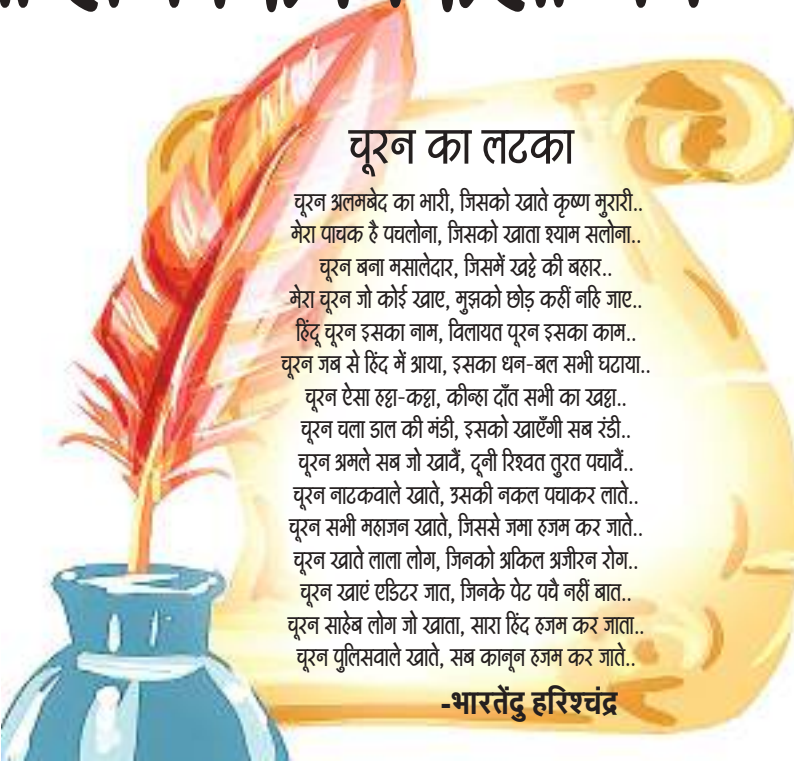 चूरन का लटका
चूरन अलमबेद का भारी, जिसको खाते कृष्ण मुरारी..
मेरा पाचक है पचलोना, जिसको खाता श्याम सलोना..
चूरन बना मसालेदार, जिसमें खट्टे की बहार..
मेरा चूरन जो कोई खाए, मुझको छोड़ कहीं नहि जाए..
हिंदू चूरन इसका नाम, विलायत पूरन इसका काम..
चूरन जब से हिंद में आया, इसका धन-बल सभी घटाया..
चूरन ऐसा हट्टा-कट्टा, कीन्हा दाँत सभी का खट्टा..
चूरन चला डाल की मंडी, इसको खाएँगी सब रंडी..
चूरन अमले सब जो खावैं, दूनी रिश्वत तुरत पचावैं..
चूरन नाटकवाले खाते, उसकी नकल पचाकर लाते..
चूरन सभी महाजन खाते, जिससे जमा हजम कर जाते..
चूरन खाते लाला लोग, जिनको अकिल अजीरन रोग..
चूरन खाएं एडिटर जात, जिनके पेट पचै नहीं बात..
चूरन साहेब लोग जो खाता, सारा हिंद हजम कर जाता..
चूरन पुलिसवाले खाते, सब कानून हजम कर जाते..
-भारतेंदु हरिश्चंद्र